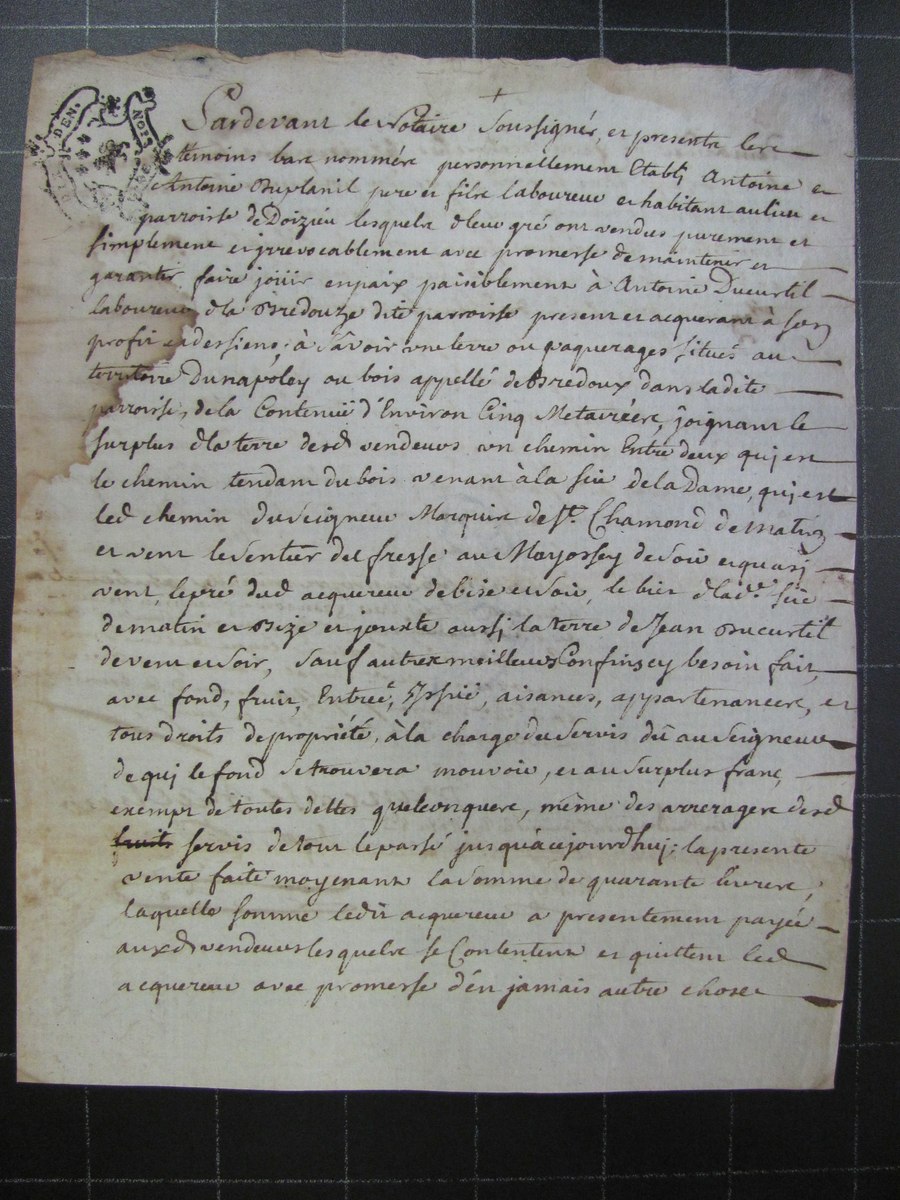 DEN. NOP
+
Pardevant le Notaire Soussigné, et presents les
temoins bas nommés personnellement Etably Antoine et
Antoine Duplanil pere et fils laboureur et habitant au lieu et
parroisse de Doizieu lesquels de leur gré ont vendus purement et
simplement et irrevocablement avec promesse de maintenir et
garantir, faire jouir en paix paisiblement à Antoine Ducurtil
laboureur de la Bredouze dite parroisse present et acquerant à son
profit et des siens; à Sçavoir une terre ou paquerages situés au
territoire Dunapoley ou bois appellé de Bredoux dans ladite
parroisse, de la Contenuë d'Environ Cinq Metairées, joignant le
surplus de la terre desd vendeurs un chemin Entre deux qui est
le chemin tendant du bois venant à la siie de la Dame, qui est
led chemin du seigneur Marquis de St. Chamond de matin
et vent le sentier de fresse au Mayossey de soir et quasi
vent, le pré dud acquereur de bise et soir, le bier de lade. siie
de matin et Bize et jouxte aussi la terre de Jean Ducurtil
de vent et soir, sauf autres meilleurs Confins sy besoin fait,
avec fond, fruit, Entrée, Yssuë, aisances, appartenances, et
tous droits de propriété, à la charge du Servis dû au Seigneur
de qui le fond se trouvera mouvoir, et au surplus franc,
exempt de toutes dettes quelconques, même des arrerages desd
fruits servis de tout le passé jusqu'àujourd'huj; la presente
vente faite moyenant la somme de quarante livres,
laquelle somme ledit acquereur a presentement payée
auxd vendeurs lesquels se Contentent et quittent led
acquereur avec promesse d'en jamais autre chose